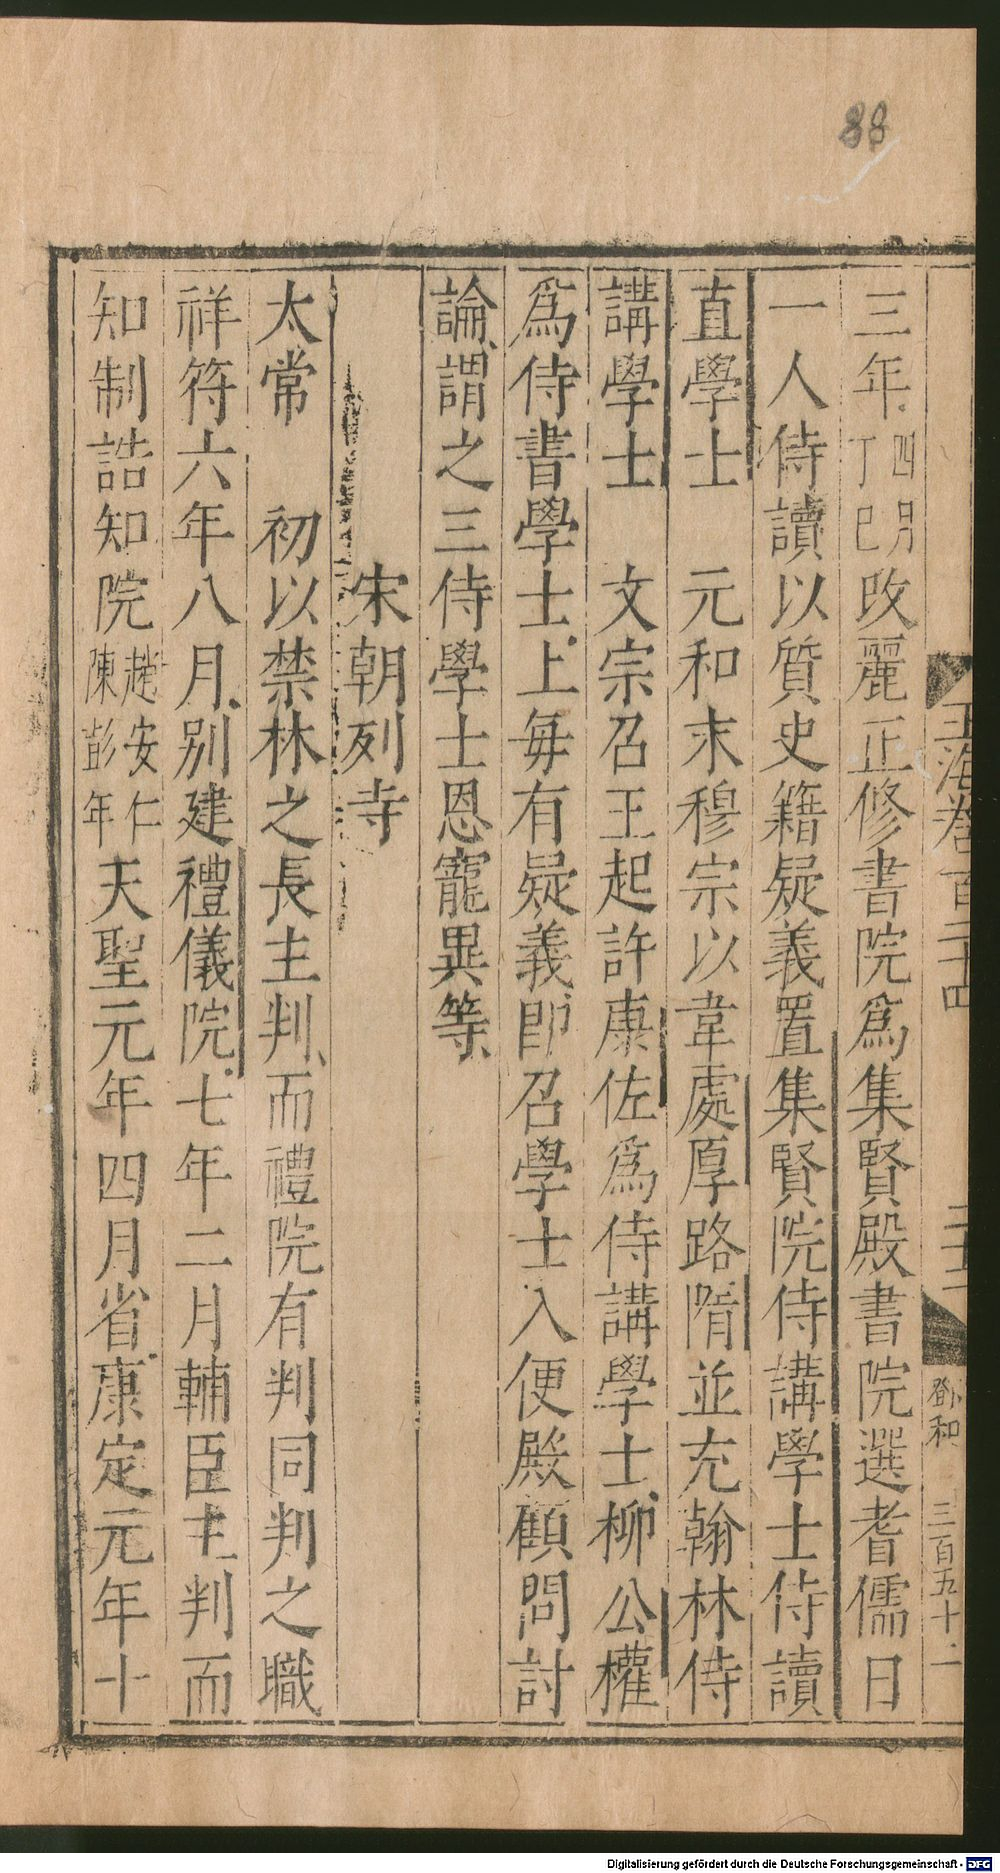 88
玉海卷百二十四
二十二
鄧和
三百五十一
三年四月丁巳改麗正修書院爲集賢殿書院選耆儒日
一人侍讀以質史籍疑義置集賢院侍講學士侍讀
直學士 元和末穆宗以韋處厚路隋並充翰林侍
講學士 文宗召王起許康佐爲侍講學士柳公權
爲侍書學士上毎有疑義即召學士入便殿顧問討
論謂之三侍學士恩寵異等
宋朝列寺
太常 初以禁林之長主判而禮院有判同判之職
祥符六年八月別建禮儀院七年二月輔臣主判而
知制誥知院趙安仁陳彭年天聖元年四月省康定元年十
Digitalisierung gefördert durch die Deutsche Forschungsgemeinschaft - DFG